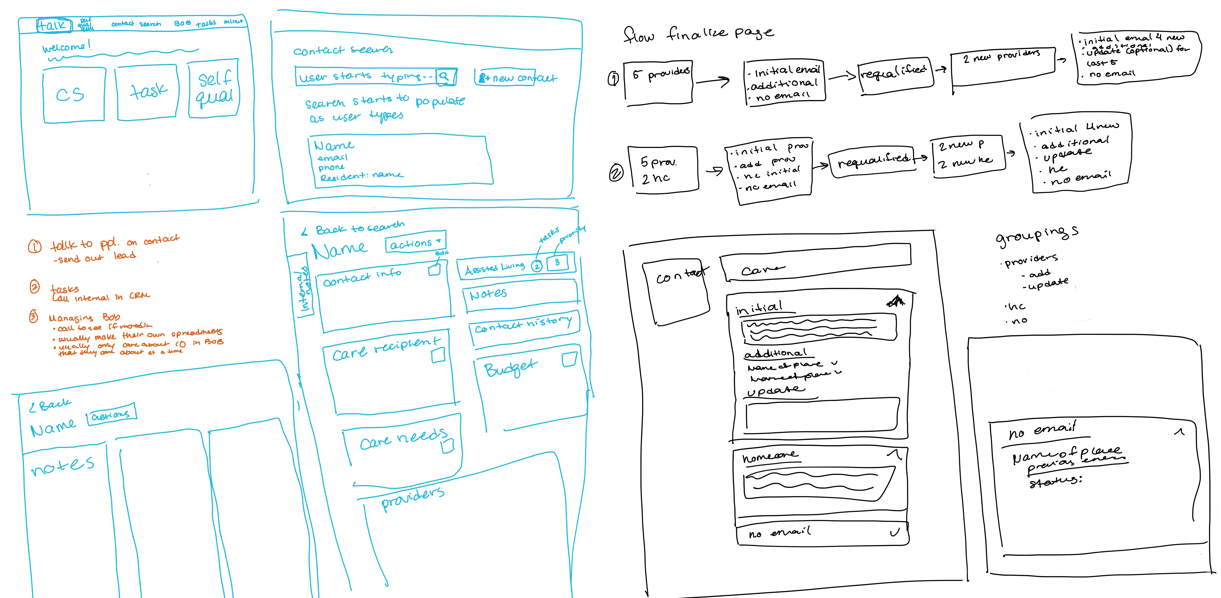 talk
self
qual
contact search
BOB
tasks
welcome!
CS
task
self
qual
contact search
user starts typing..
+ new contact
search starts to populate
as user types
Name
email
phone
Resident: name
1 talk to ppl. on contact
- send out lead
2 tasks
call internal in CRM
3 Managing Bob
• call to see if moved in
• usually make their own spreadsheets
• usually only care about 10 in BOB
that they care about at a time
< Back
Name
actions
notes
< Back to search
Name
actions
tasks
priority
internal
notes
contact info
edit
Assisted Living
2
3
Notes
Contact history
Care recipient
Budget
Care needs
providers
flow finalize page
1
5 providers
• initial email
• additional
• no email
requalified
2 new providers
• initial email 4 new
• additional
• update (optional) for
last 5
• no email
2
5 prov.
2 hc
• initial prov
• add prov
• hc initial
• no email
requalified
2 new p
2 new hc
• initial 4 new
• additional
• update
• hc
• no email
contact
Care
initial
additional
Name of place
Name of place
update
homecare
no email
groupings
• providers
- add
- update
• hc
• no
no email
Name of place
previous emails
status: